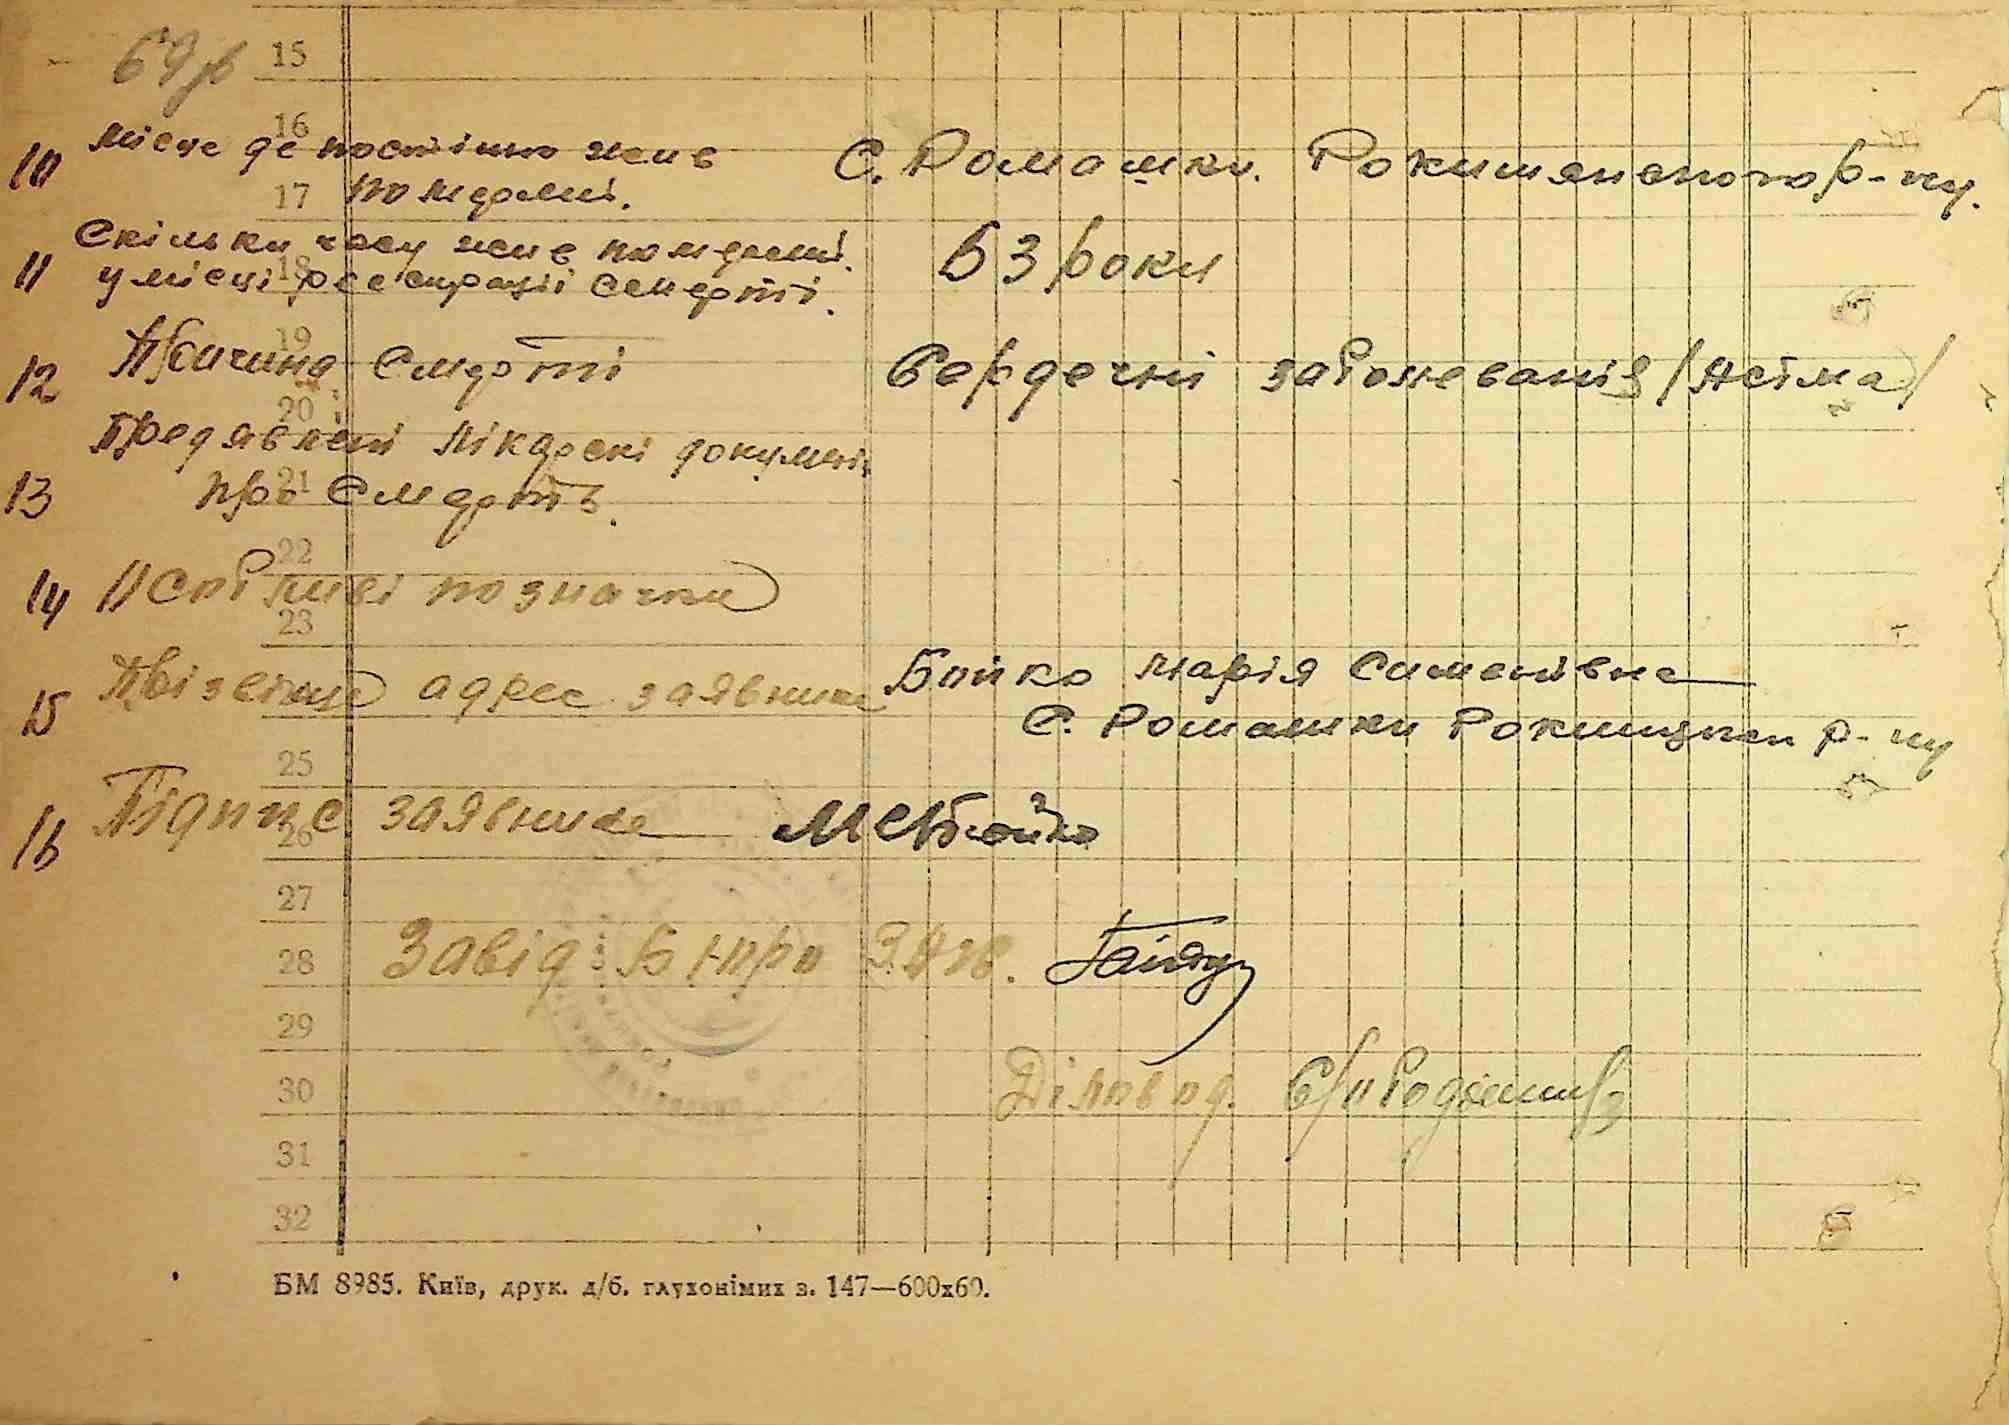 69 зв 15
16
10 місце де постійно жив
17 померлий. С. Ромашки. Рокитянського р-ну.
Скільки часу жив померлий
11 18 у місці реєстрації смерті. 63 роки
19
12 Причина смерті Сердечні заболеванія /Астма/
20
Предявлені лікарскі документи
13 21 про смерть.
22
14 Особливі позначки
23
15 Прізвище адрес заявника Бойко Марія Сименівна
С. Ромашки р-ну
25
16 Підпис заявника МСБойко
26
27
28 Завід. Бюро ЗАГС.
29
30 Діловод.
31
32
БМ 8985. Київ, друк. д/б. глухонімих з. 147—600х60.